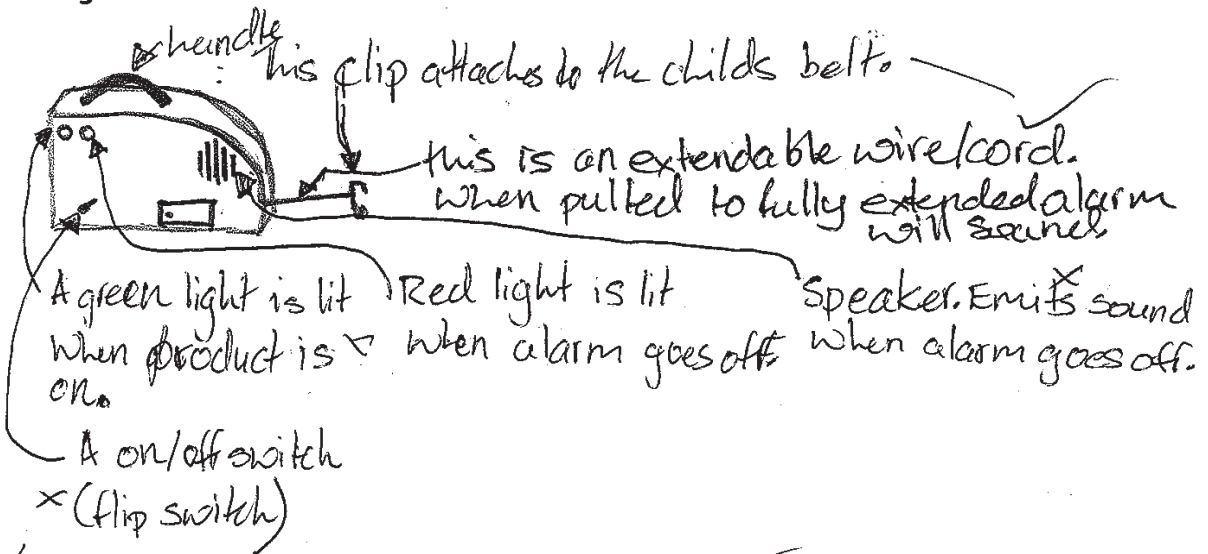 handle
this clip attaches to the childs belt.
this is an extendable wire/cord.
when pulled to fully extended alarm
will sound.
A green light is lit
when product is
on.
Red light is lit
when alarm goes off.
Speaker. Emits sound
when alarm goes off.
A on/off switch
(flip switch)